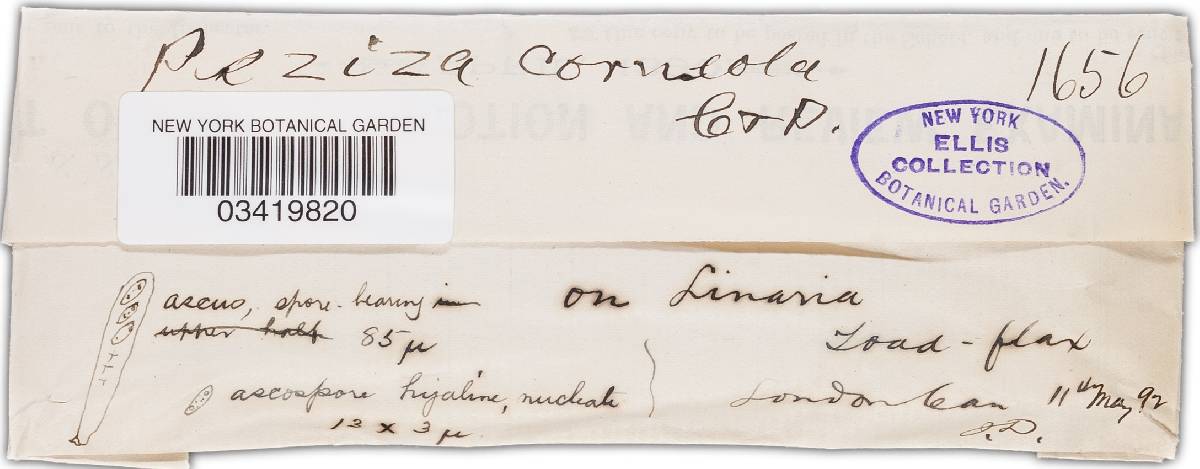 Peziza corneola
C & P.
1656
NEW YORK BOTANICAL GARDEN
03419820
NEW YORK
ELLIS
COLLECTION
BOTANICAL GARDEN.
ascus, spore-bearing in
upper half 85 µ
ascospore hyaline, nucleate
13 x 3 µ.
on Linaria
Toad-flax
London Can 11th May 92
J.D.